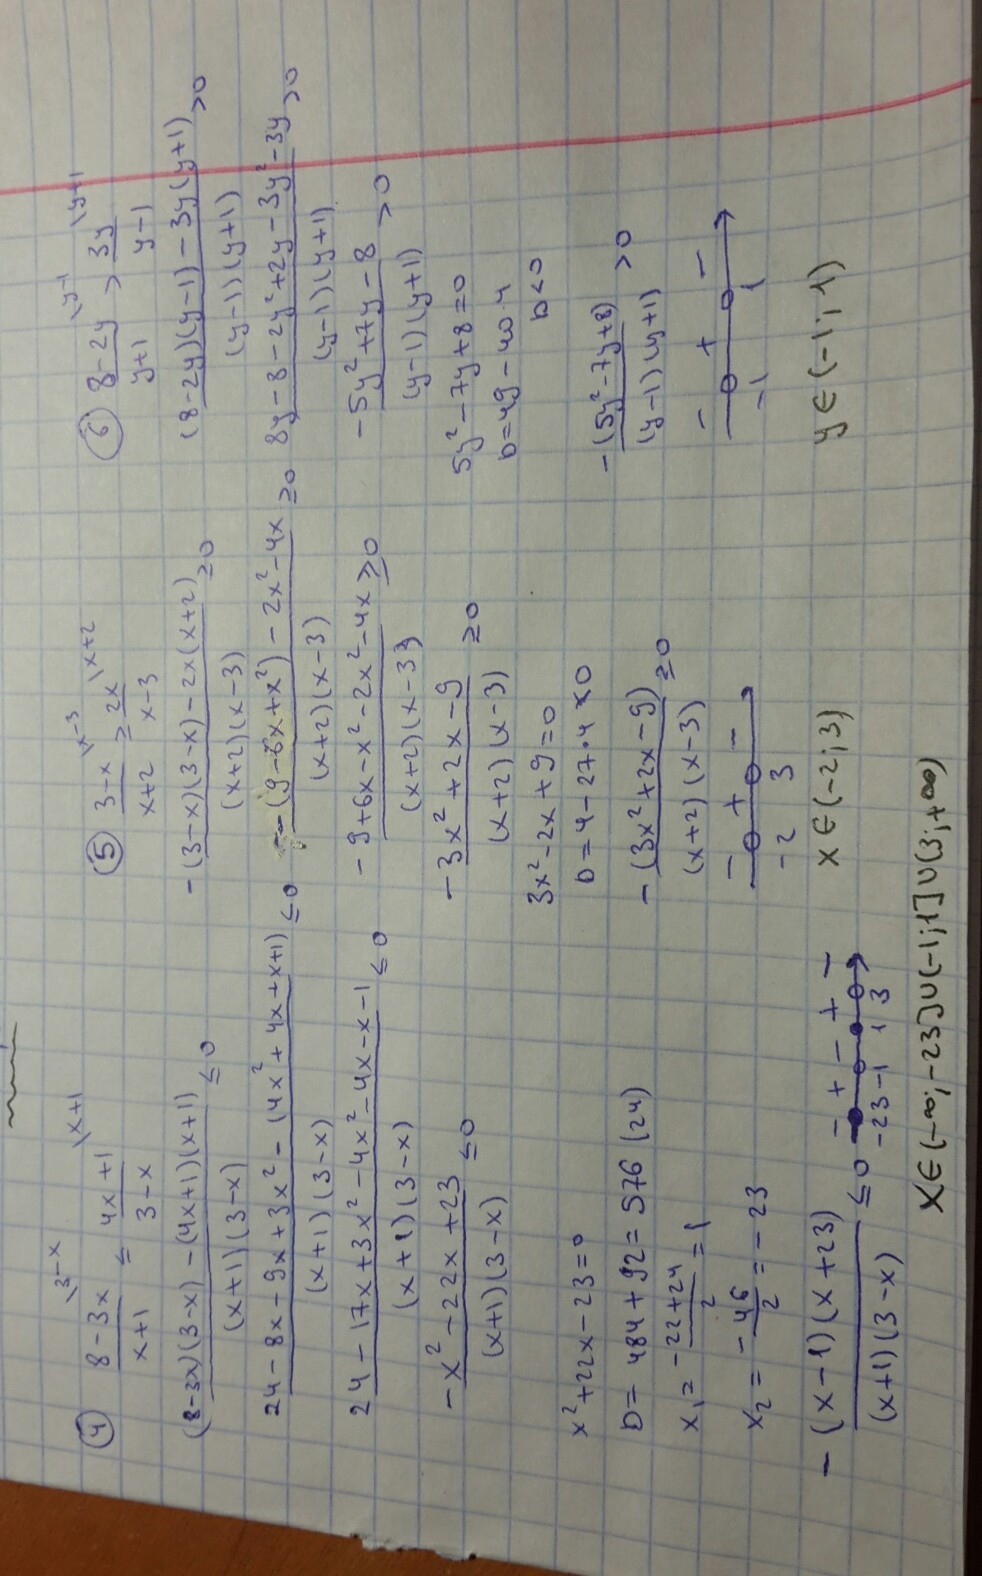 ④ (8-3x)/(x+1) \3-x ≤ (4x+1)/(3-x) \x+1
((8-3x)(3-x)-(4x+1)(x+1))/((x+1)(3-x)) ≤0
(24-8x-9x+3x²-(4x²+4x+x+1))/((x+1)(3-x)) ≤0
(24-17x+3x²-4x²-4x-x-1)/((x+1)(3-x)) ≤0
(-x²-22x+23)/((x+1)(3-x)) ≤0
x²+22x-23=0
D=484+92=576 (24)
x₁=(-22+24)/2=1
x₂=-46/2=-23
(-(x-1)(x+23))/((x+1)(3-x)) ≤0
- + - + -
-23 -1 1 3
x∈(-∞;-23]∪(-1;1]∪(3;+∞)
⑤ (3-x)/(x+2) \x-3 ≥ 2x/(x-3) \x+2
(-(3-x)(3-x)-2x(x+2))/((x+2)(x-3)) ≥0
(-(9-6x+x²)-2x²-4x)/((x+2)(x-3)) ≥0
(-9+6x-x²-2x²-4x)/((x+2)(x-3)) ≥0
(-3x²+2x-9)/((x+2)(x-3)) ≥0
3x²-2x+9=0
D=4-27·4<0
(-(3x²+2x-9))/((x+2)(x-3)) ≥0
- + -
-2 3
x∈(-2;3)
⑥ (8-2y)/(y+1) \y-1 > 3y/(y-1) \y+1
((8-2y)(y-1)-3y(y+1))/((y-1)(y+1)) >0
(8y-8-2y²+2y-3y²-3y)/((y-1)(y+1)) >0
(-5y²+7y-8)/((y-1)(y+1)) >0
5y²-7y+8=0
D=49-40·4
D<0
(-(5y²-7y+8))/((y-1)(y+1)) >0
- + -
-1 1
y∈(-1;1)